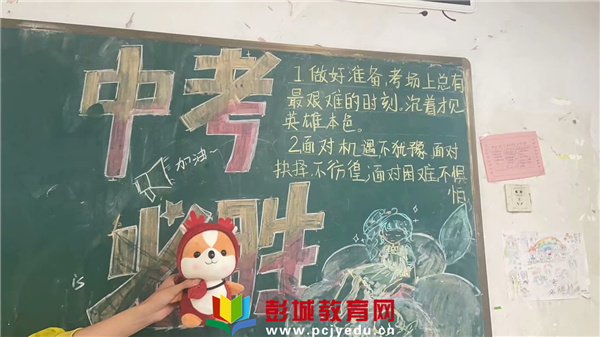 中考
必胜
加油~
1做好准备,考场上总有
最艰难的时刻,沉着才见
英雄本色。
2.面对机遇不犹豫,面对
抉择,不彷徨,面对困难不惧
怕
is
彭城教育网
www.pcjyedu.cn